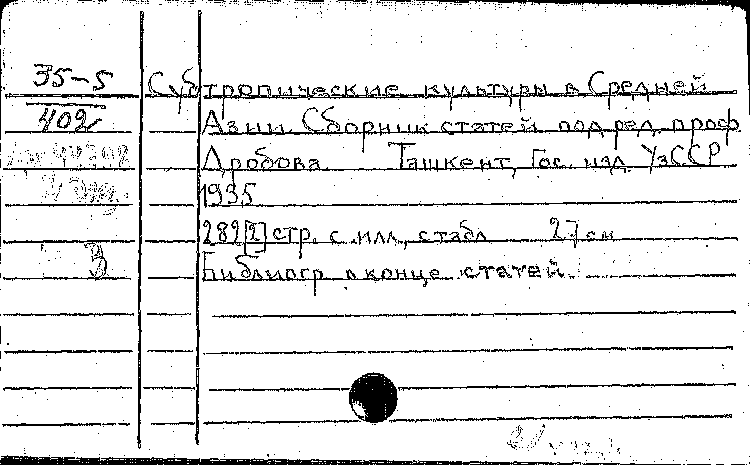 35-5 Субтропические культуры в Средней
402 Азии. Сборник статей под ред. проф
Дробова. Ташкент, Гос. изд. УзССР
2 экз. 1935
282[2] стр. с илл., с табл 27 см
3 Библиогр. в конце статей.